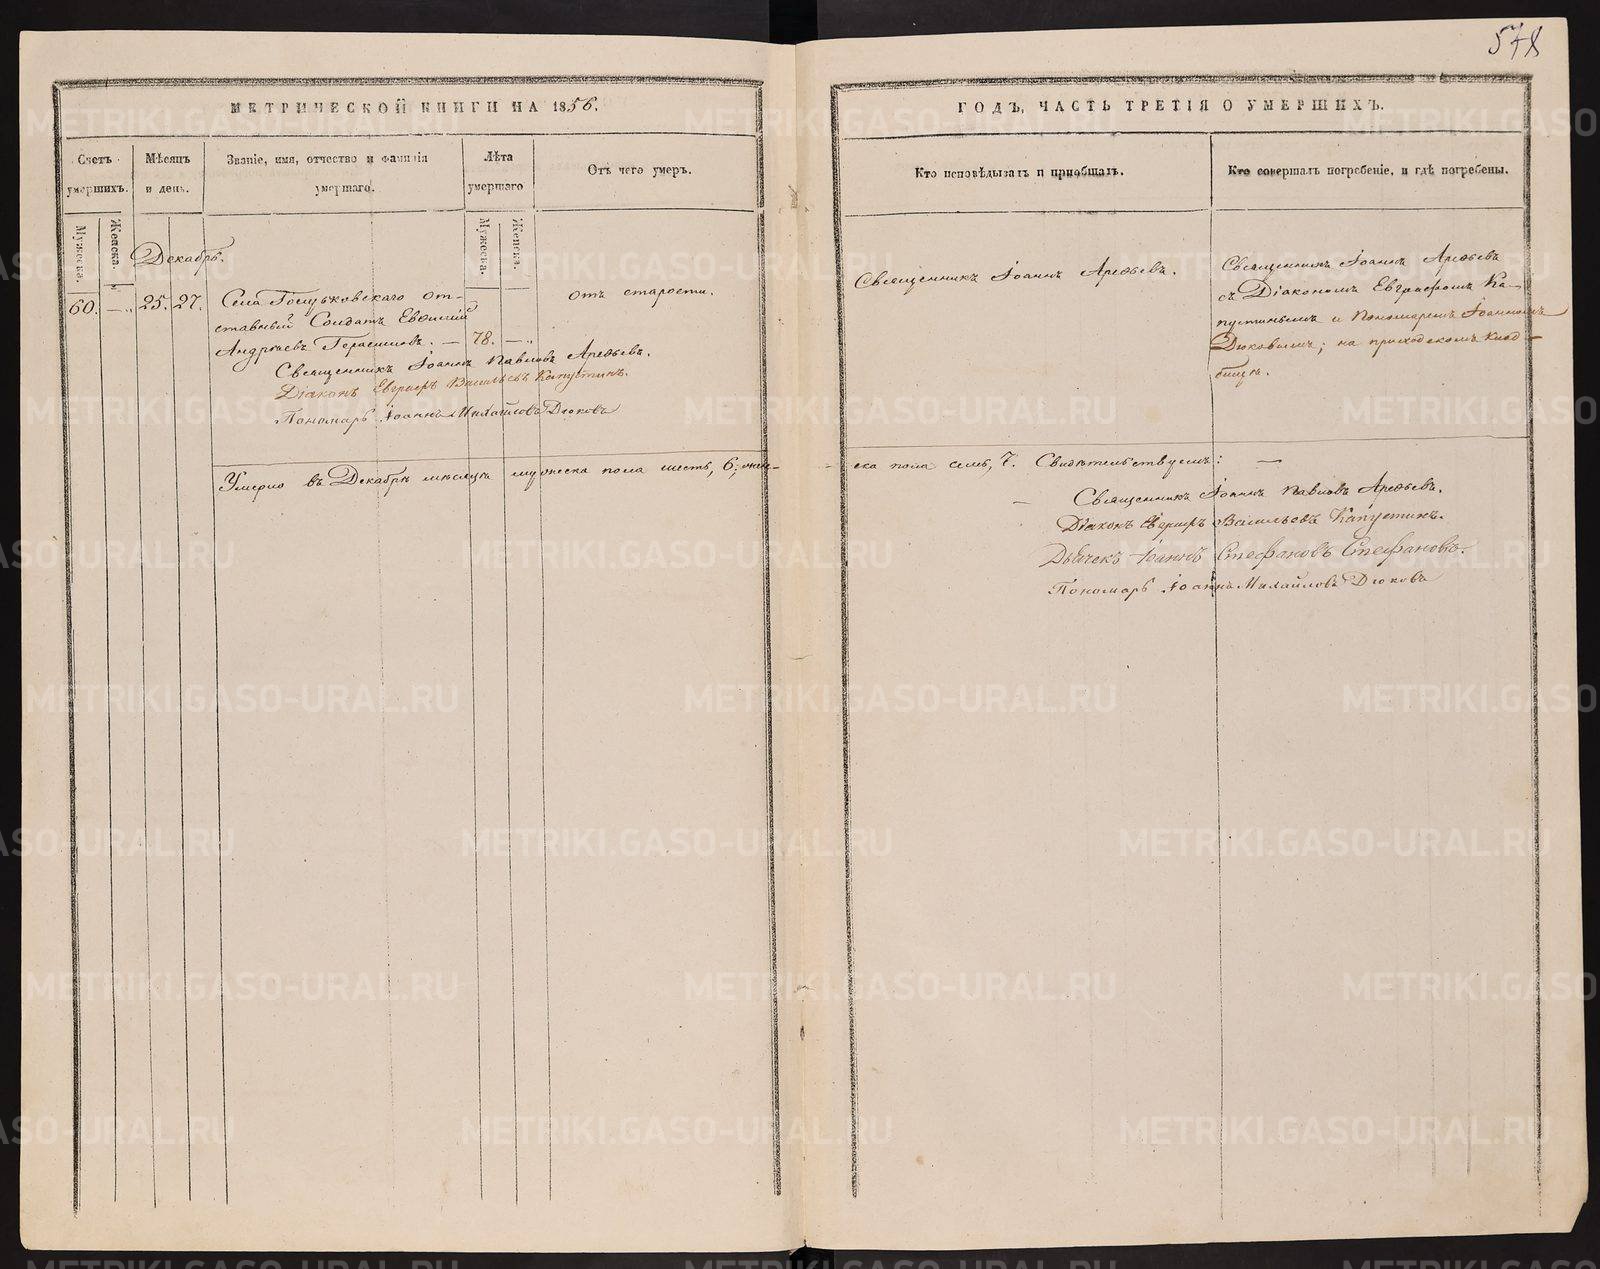 578
МЕТРИЧЕСКОЙ КНИГИ НА 1856.
Счетъ умершихъ.
Мѣсяцъ и день.
Званіе, имя, отчество и фамилія умершаго.
Лѣта умершаго
Отъ чего умеръ.
Мужеска.
Женска.
Мужеска.
Женска.
Декабрь.
60. — 25. 27.
Села отставный Солдатъ Евѳимій
Андреевъ Герасимовъ. — 78. —
отъ старости.
Священникъ Іоаннъ Павловъ Арефьевъ.
Діаконъ Евграфъ Васильевъ Капустинъ.
Пономарь Іоаннъ Михайловъ Дюковъ
Умерло въ Декабрѣ мѣсяцѣ мужеска пола шесть, 6; жен-
ГОДЪ, ЧАСТЬ ТРЕТІЯ О УМЕРШИХЪ.
Кто исповѣдывалъ и пріобщалъ.
Кто совершалъ погребеніе, и гдѣ погребены.
Священникъ Іоаннъ Арефьевъ.
Священникъ Іоаннъ Арефьевъ
съ Діакономъ Евграфомъ Ка-
пустинымъ и Пономаремъ Іоанномъ
Дюковымъ; на приходскомъ клад-
бищѣ.
ска пола семь, 7. Свидѣтельствуемъ: —
Священникъ Іоаннъ Павловъ Арефьевъ.
Діаконъ Евграфъ Васильевъ Капустинъ.
Дьячекъ Іоаннъ Стефановъ Стефановъ.
Пономарь Іоаннъ Михайловъ Дюковъ
METRIKI.GASO-URAL.RU